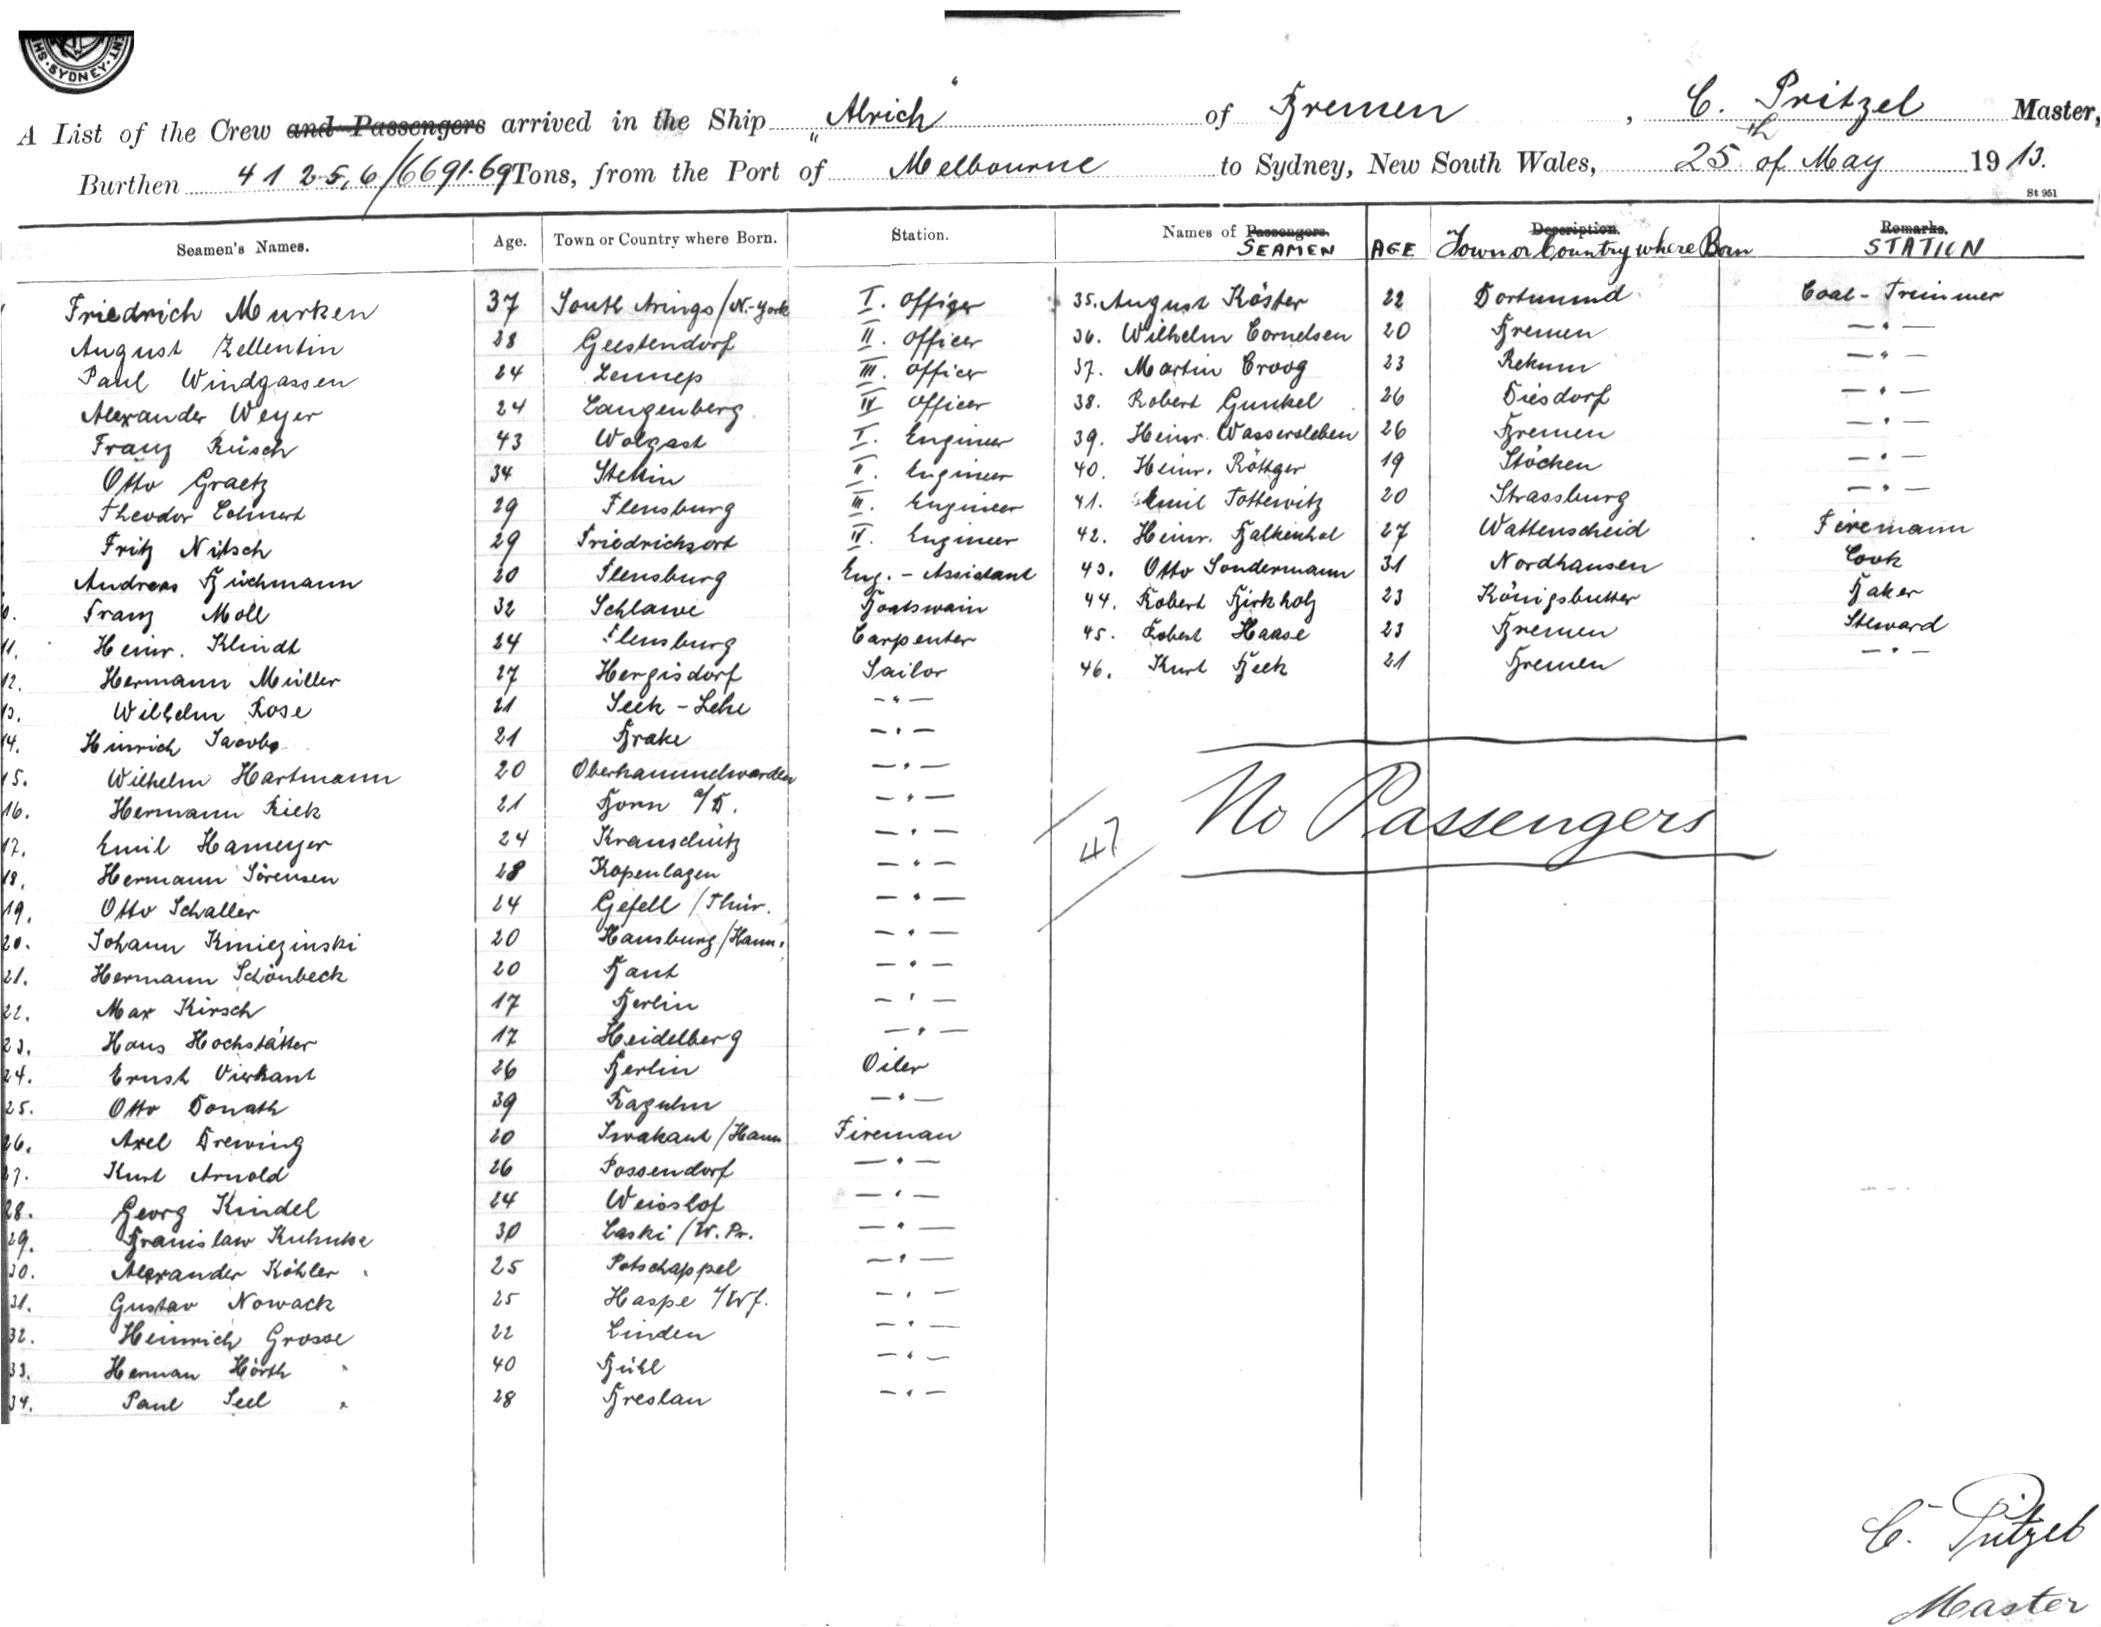 SYDNEY
A List of the Crew and Passengers arrived in the Ship "Alrich" of Bremen, C. Pritzel Master,
Burthen 4125,6/6691.69 Tons, from the Port of Melbourne to Sydney, New South Wales, 25th of May 1913.
St 951
Seamen's Names. Age. Town or Country where Born. Station. Names of Passengers. SEAMEN AGE Description. Town or Country where Born Remarks. STATION
Friedrich Murken 37 South /N.-York I. Officer 35. August Köster 22 Dortmund Coal-Trimmer
August Zellentin 28 Geestendorf II. Officer 36. Wilhelm Cornelsen 20 Bremen —"—
Paul Windgassen 24 Lennep III. Officer 37. Martin Croog 23 Rekum —"—
Alexander Weyer 24 Langenberg IV Officer 38. Robert Gunkel 26 Diesdorf —"—
Franz Rüsch 43 Wolgast I. Engineer 39. Heinr. Wassersleben 26 Bremen —"—
Otto Graetz 34 Stettin II. Engineer 40. Heinr. Röttger 19 Stöcken —"—
Theodor 29 Flensburg III. Engineer 41. Emil Tottewitz 20 Strassburg —"—
Fritz Nitsch 29 Friedrichsort IV. Engineer 42. Heinr. Balkenhol 27 Wattenscheid Firemann
Andreas Büchmann 20 Flensburg Eng.-Assistant 43. Otto Sondermann 31 Nordhausen Cook
0. Franz Moll 32 Schlawe Boatswain 44. Robert Birkholz 23 Königshutter Baker
11. Heinr. Klindt 24 Flensburg Carpenter 45. Robert Haase 23 Bremen Steward
12. Hermann Müller 27 Hergisdorf Sailor 46. Kurt Beck 21 Bremen —"—
13. Wilhelm Rose 21 Seek-Lehe —"—
14. Hinrich Jacobs 21 Brake —"—
15. Wilhelm Hartmann 20 Oberhammelwarden —"—
16. Hermann Rick 21 Born a/D. —"—
No Passengers
47
17. Emil Hameyer 24 Kranschütz —"—
18. Hermann Sörensen 28 Kopenhagen —"—
19. Otto Schaller 24 Gefell /Thür. —"—
20. Johann Kmiezinski 20 Hamburg/Hann. —"—
21. Hermann Schönbeck 20 Bant —"—
22. Max Kirsch 17 Berlin —"—
23. Hans Hochstätter 17 Heidelberg —"—
24. Ernst Vierkant 26 Berlin Oiler
25. Otto Donath 39 Raguhn —"—
26. Axel Drewing 20 /Hann Fireman
27. Kurt Arnold 26 Possendorf —"—
28. Georg Kindel 24 Weisshof —"—
29. Branislaw 30 Laski /W.Pr. —"—
30. Alexander Köhler 25 Potschappel —"—
31. Gustav Nowack 25 Haspe i/Wf. —"—
32. Heinrich Grosse 22 Linden —"—
33. Herman Hörth 40 Bühl —"—
34. Paul Seel 28 Breslau —"—
C. Pritzel
Master